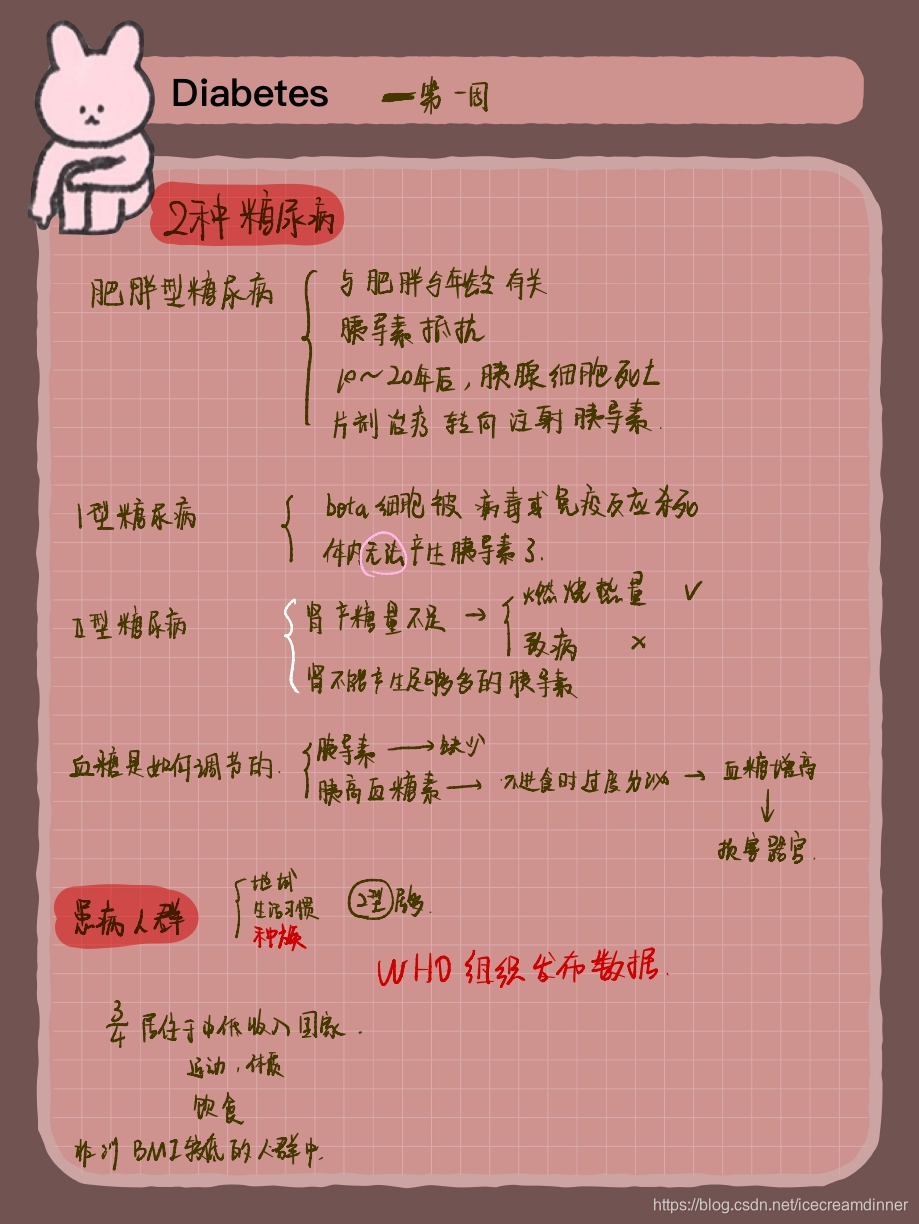 Diabetes 一第一周
2种糖尿病
肥胖型糖尿病
与肥胖与年龄有关
胰导素抵抗
10～20年后,胰腺细胞死亡
片剂治疗转向注射胰导素.
I型糖尿病
beta细胞被病毒或免疫反应杀死
体内无法产生胰导素了.
II型糖尿病
肾产糖量不足 → 燃烧热量 ✓
致病 ×
肾不能产生足够多的胰导素
血糖是如何调节的.
胰导素 → 缺少
胰高血糖素 → 不进食时过度分泌 → 血糖增高
↓
损害器官.
患病人群
地域
生活习惯
种族
2型居多.
WHO组织发布数据.
3/4 居住于中低收入国家.
运动,体质
饮食
相对BMI较低的人群中.
https://blog.csdn.net/icecreamdinner